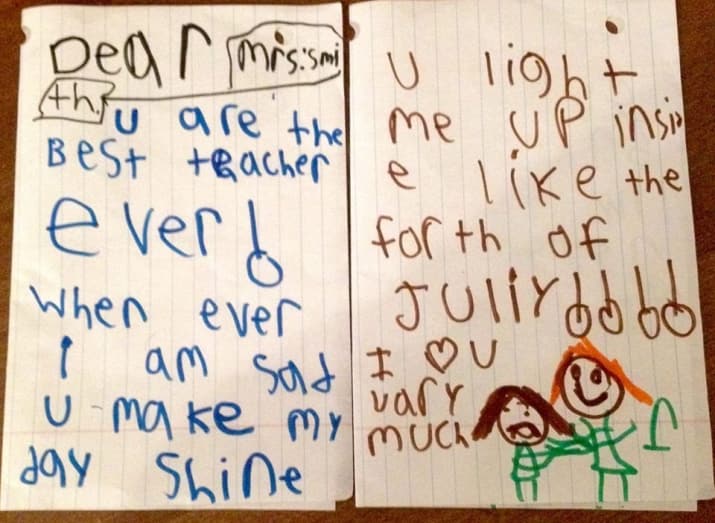 Dear Mrs.:smi
th,
u are the
Best teacher
ever!
when ever
I am sad
u make my
day shine
u light
me up insid
e like the
forth of
Juliy!!!!
I ♡ U
vary
much